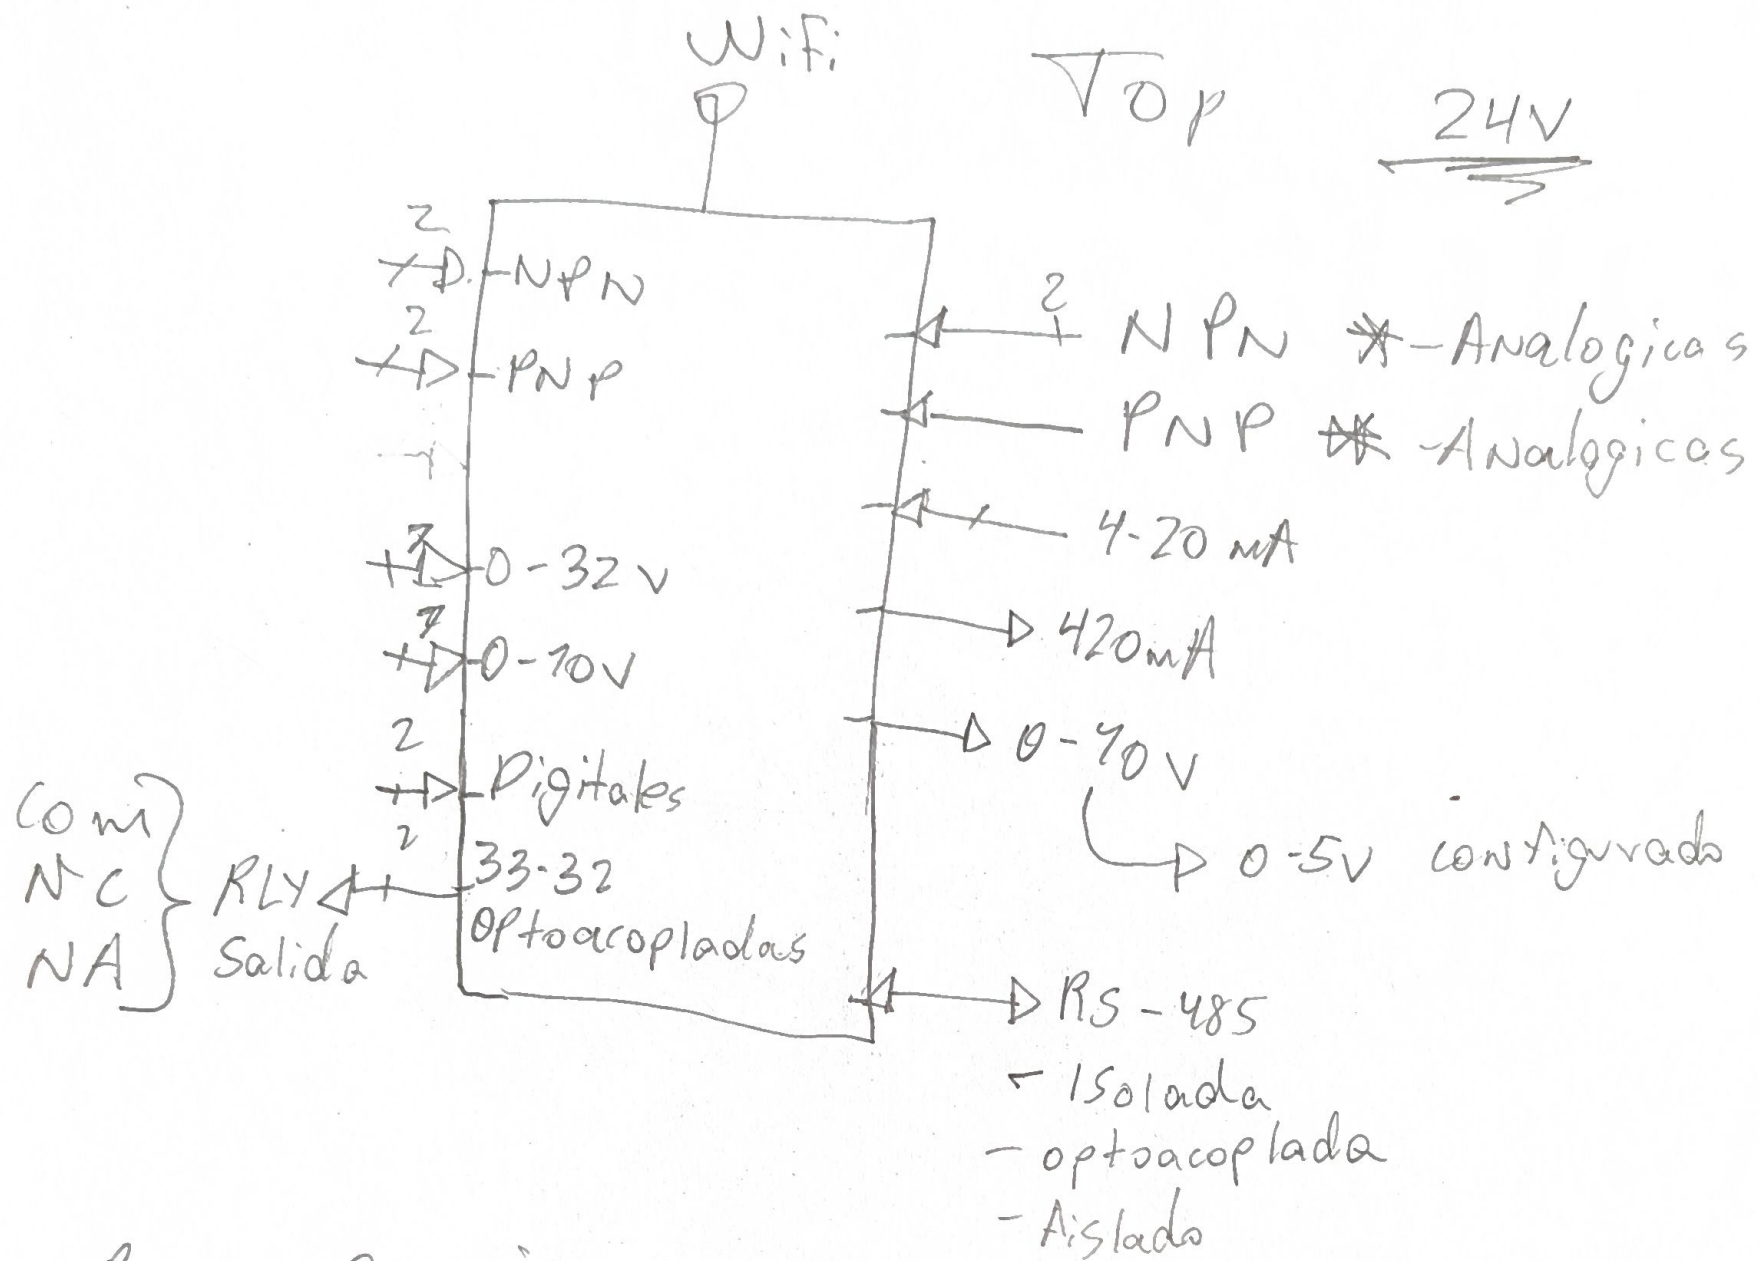 WiFi
Top
24V
2
NPN
2
PNP
0-32V
0-10V
2
Digitales
2
33-32
Optoacopladas
Com
NC
NA
RLY
Salida
2
NPN * - Analogicas
PNP * - Analogicas
4-20 mA
420mA
0-10V
0-5V configurado
RS-485
- Isolada
- optoacoplada
- Aislado